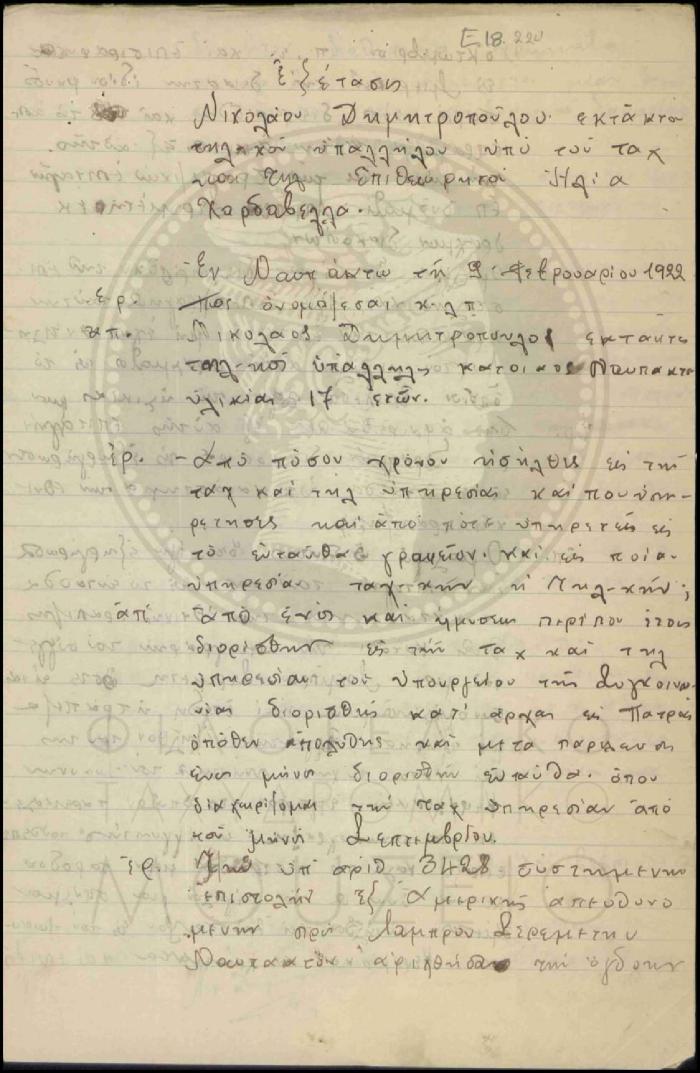 Ε 18. 220
Ἐξέτασις
Νικολάου Δημητροπούλου ἐκτάκτου
τηλ-κοῦ ὑπαλλήλου ὑπό τοῦ ταχ
τηλ Ἐπιθεωρητοῦ Ἠλία
Καρδαβέλλα.
Ἐν Ναυπάκτῳ τῇ 9 Φεβρουαρίου 1922
Ἐρ. Πῶς ὀνομάζεσαι κ.λ.π.
απ. Νικόλαος Δημητρόπουλος ἐκτακτο
τηλ-κός ὑπάλληλος κάτοικος Ναυπακτο
ἡλικίας 17 ἐτῶν.
ἐρ. - Ἀπό πόσον χρόνον εἰσῆλθες εἰς τήν
ταχ καί τηλ ὑπηρεσίαν καί που ὑπη-
ρέτησες καί ἀπό πότε ὑπηρετεῖς εἰς
τό ἐνταῦθα γραφεῖον. καί εἰς ποία
ὑπηρεσίαν ταχ-κήν ἤ τηλ-κήν;
ἀπ' Ἀπό ἑνός καί ἡμίσεως περίπου ἔτους
διορίσθην εἰς τήν ταχ καί τηλ
ὑπηρεσίαν τοῦ Ὑπουργείου τῆς Συγκοινω
νίας διορισθείς κατ' ἀρχάς εἰς Πάτρας
ὁπόθεν ἀπολύθης καί μετά παρέλευσιν
ἑνός μηνός διορίσθην ἐνταῦθα. ὅπου
διαχειρίζομαι τήν ταχ ὑπηρεσίαν ἀπό
τοῦ μηνός Σεπτεμβρίου.
ἐρ Τήν ὑπ' ἀριθ 3428 συστημένην
ἐπιστολήν ἐξ Ἀμερικῆς ἀπευθυνο
μένην πρός Λάμπρον Σερεμέτην
Ναύπακτον τήν ὀγδόην